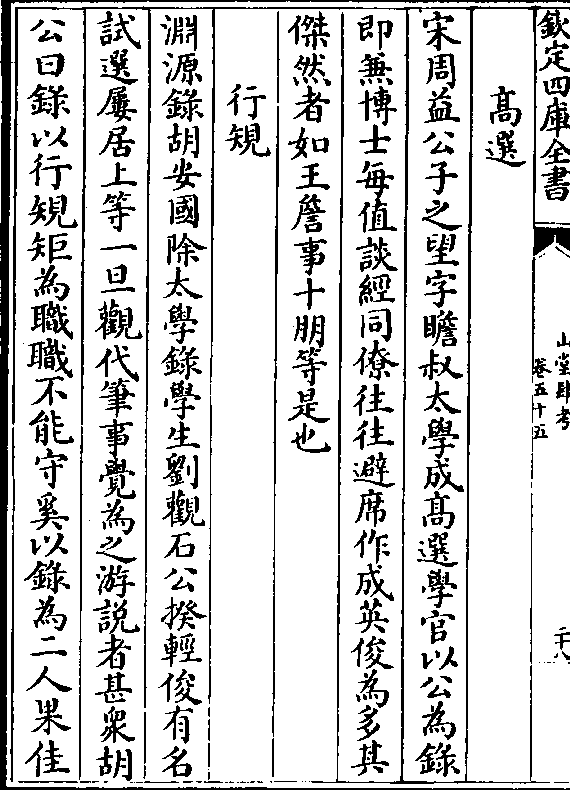 欽定四庫全書
山堂肆考
卷五十五
二十八
高選
宋周益公子之望字瞻叔太學成髙選學官以公為錄
即兼博士毎值談經同僚往往避席作成英俊為多其
傑然者如王詹事十朋等是也
行規
淵源錄胡安國除太學錄學生劉觀石公揆輕俊有名
試選屢居上等一旦觀代筆事覺為之游説者甚衆胡
公曰錄以行規矩為職職不能守奚以錄為二人果佳